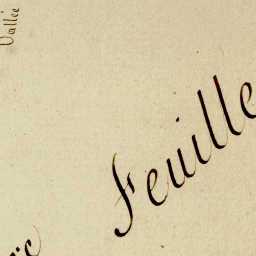 Vallée
Feuille